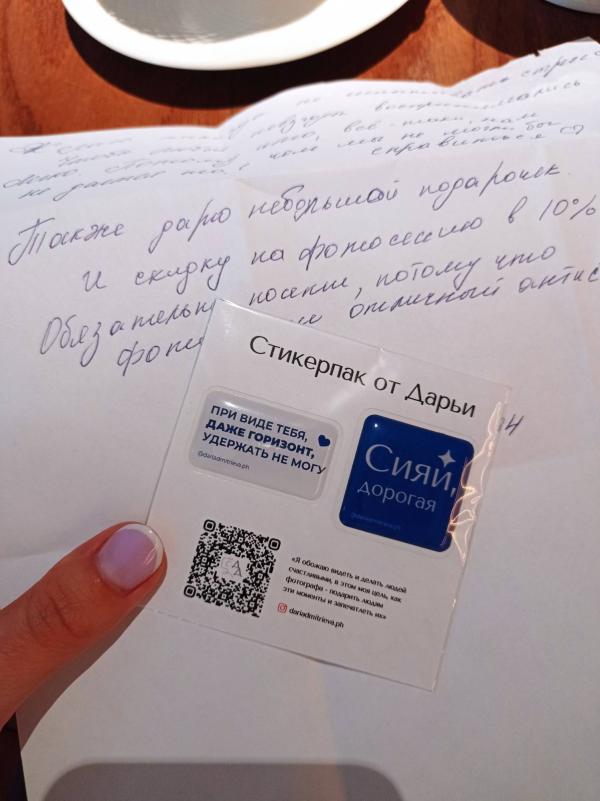 все-таки, нам
не дается
чем мы не могли бы
справиться
Также дарю небольшой подарочек.
И скидку на фотосессию в 10%
Обязательно поспи, потому что
отличный антис
Стикерпак от Дарьи
ПРИ ВИДЕ ТЕБЯ,
ДАЖЕ ГОРИЗОНТ,
УДЕРЖАТЬ НЕ МОГУ
@dariadmitrieva.ph
Сияй,
дорогая
@dariadmitrieva.ph
«Я обожаю видеть и делать людей
счастливыми, в этом моя цель, как
фотографа - подарить людям
эти моменты и запечатлеть их»
dariadmitrieva.ph